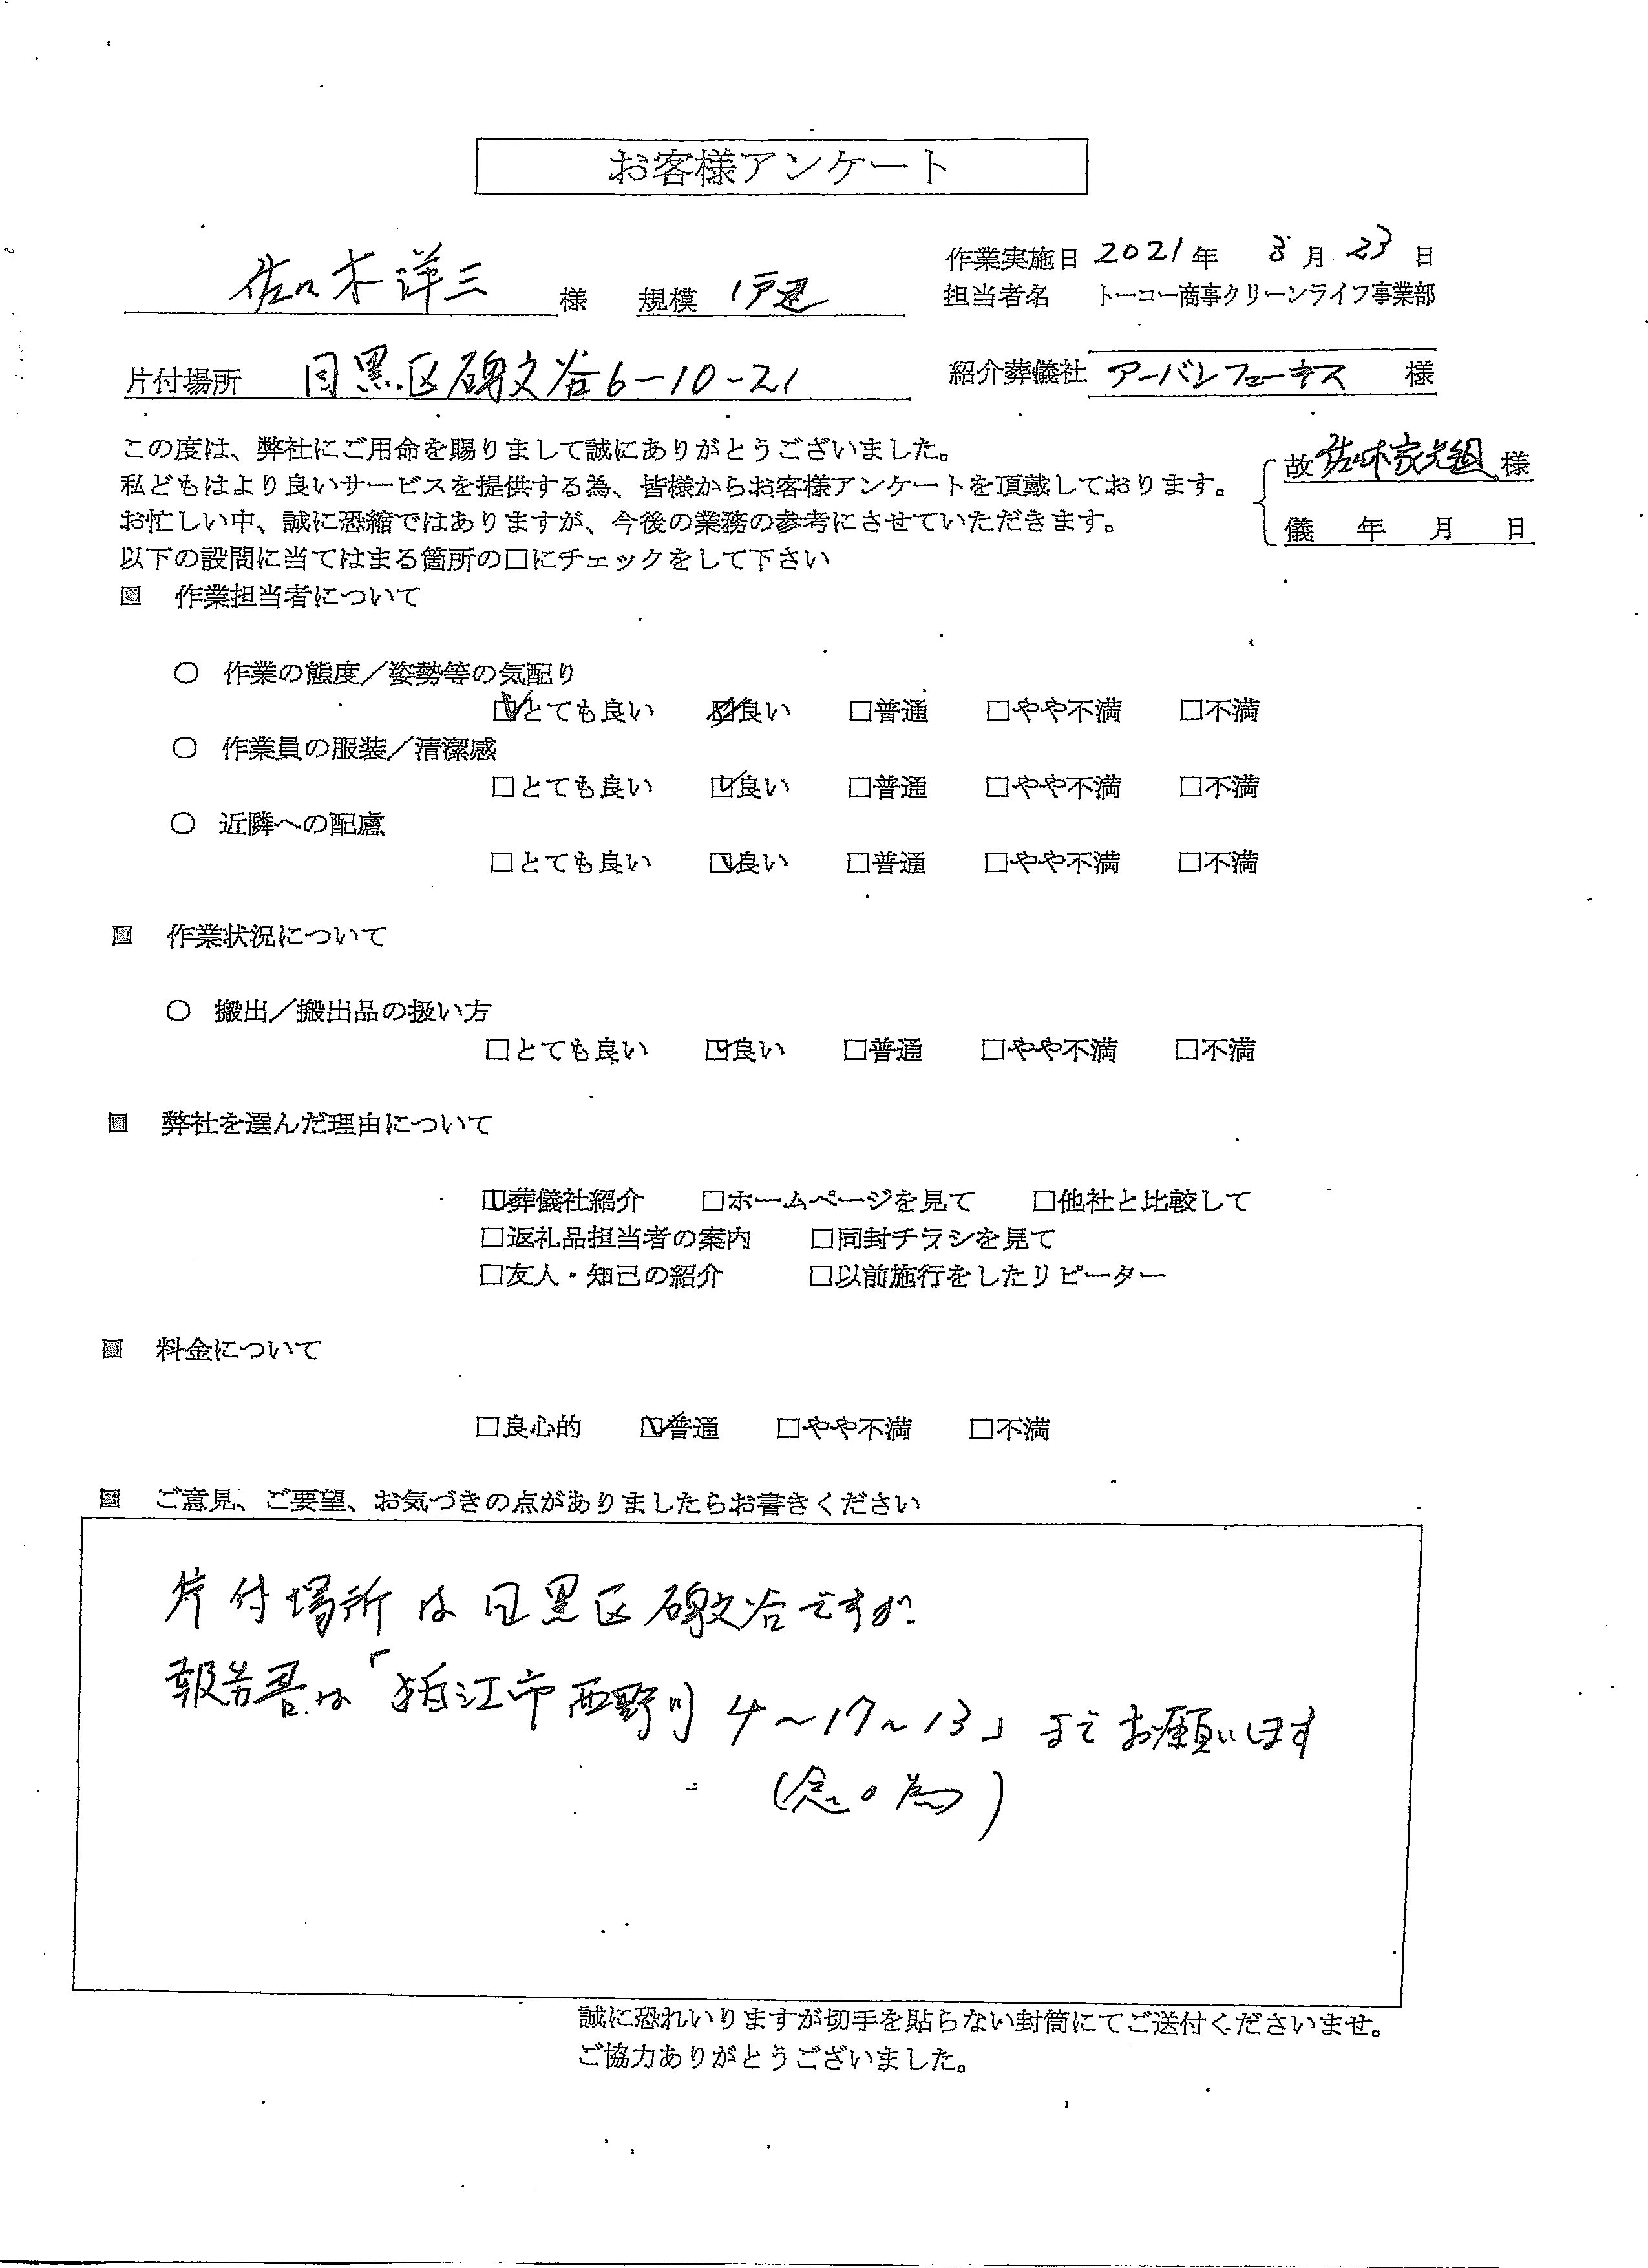 お客様アンケート
佐々木洋三 様 規模 1戸建
作業実施日 2021年 3月 23日
担当者名 トーコー商事クリーンライフ事業部
片付場所 目黒区碑文谷6-10-21
紹介葬儀社 アーバンフューネス 様
この度は、弊社にご用命を賜りまして誠にありがとうございました。
故 佐々木家先祖 様
私どもはより良いサービスを提供する為、皆様からお客様アンケートを頂戴しております。
お忙しい中、誠に恐縮ではありますが、今後の業務の参考にさせていただきます。
儀 年 月 日
以下の設問に当てはまる箇所の口にチェックをして下さい
▣ 作業担当者について
○ 作業の態度／姿勢等の気配り
☑とても良い ☑良い □普通 □やや不満 □不満
○ 作業員の服装／清潔感
□とても良い ☑良い □普通 □やや不満 □不満
○ 近隣への配慮
□とても良い ☑良い □普通 □やや不満 □不満
▣ 作業状況について
○ 搬出／搬出品の扱い方
□とても良い ☑良い □普通 □やや不満 □不満
▣ 弊社を選んだ理由について
☑葬儀社紹介 □ホームページを見て □他社と比較して
□返礼品担当者の案内 □同封チラシを見て
□友人・知己の紹介 □以前施行をしたリピーター
▣ 料金について
□良心的 ☑普通 □やや不満 □不満
▣ ご意見、ご要望、お気づきの点がありましたらお書きください
片付場所は目黒区碑文谷ですが
報告書は「狛江市西野川4～17～13」までお願いします
(念の為)
誠に恐れいりますが切手を貼らない封筒にてご送付くださいませ。
ご協力ありがとうございました。